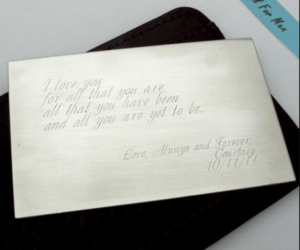 For Men
I love you
for all that you are
all that you have been
and all you are yet to be.
Love, Always and Forever,
Courtney
10/11/11